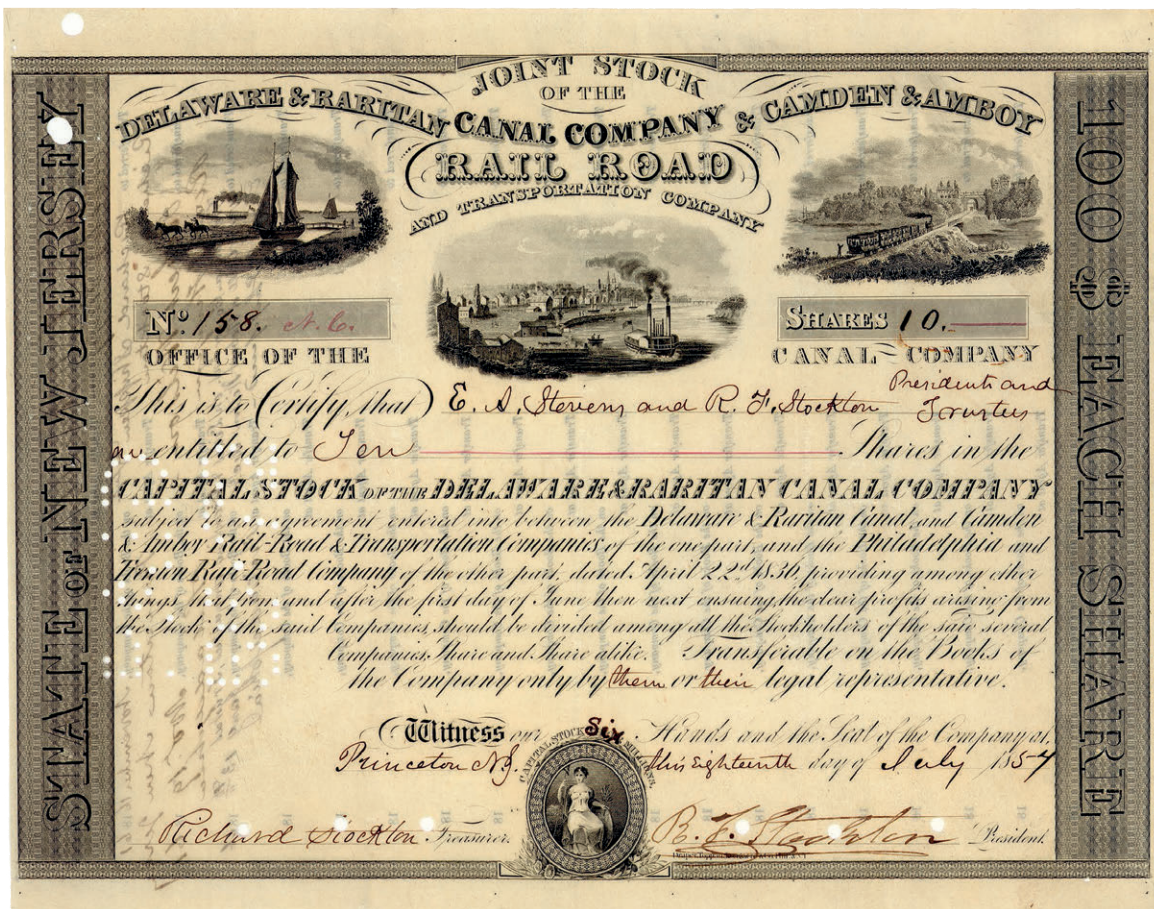 JOINT STOCK
OF THE
DELAWARE & RARITAN CANAL COMPANY & CAMDEN & AMBOY
RAIL ROAD
AND TRANSPORTATION COMPANY
STATE OF NEW JERSEY
100 $ EACH SHARE
No. 158. N. C.
SHARES 10.
OFFICE OF THE CANAL COMPANY
This is to Certify, that E. A. Stevens and R. F. Stockton Presidents and Trustees
are entitled to Ten Shares in the
CAPITAL STOCK OF THE DELAWARE & RARITAN CANAL COMPANY
subject to an agreement entered into between the Delaware & Raritan Canal, and Camden
& Amboy Rail-Road & Transportation Companies of the one part, and the Philadelphia and
Trenton Rail-Road Company of the other part, dated April 22d 1836, providing among other
things, that from and after the first day of June then next ensuing, the clear profits arising from
the Stock of the said Companies, should be divided among all the Stockholders of the said several
Companies, Share and Share alike. Transferable on the Books of
the Company only by them or their legal representative.
Witness our Hands and the Seal of the Company at
Princeton N.J. this Eighteenth day of July 1857
CAPITAL STOCK Six MILLIONS
Richard Stockton Treasurer.
R. F. Stockton President.